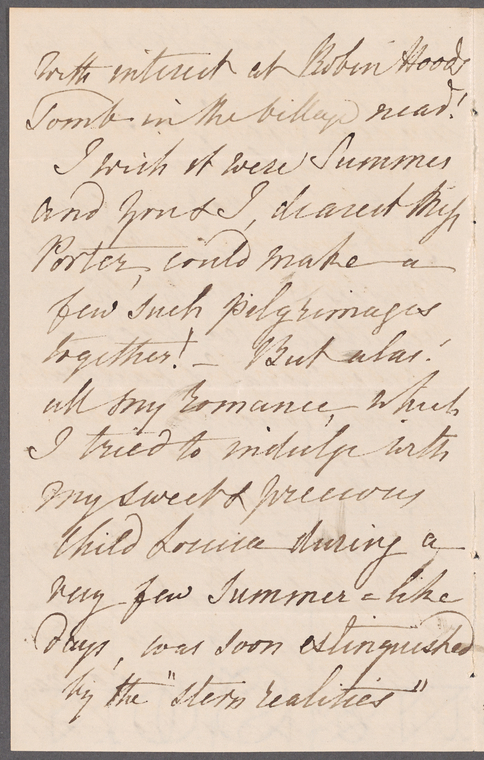 with interest at Robin Hoods
Tomb in the village near!
I wish it were Summer
and you & I, dearest Miss
Porter, could make a
few such pilgrimages
together! – But alas!
all my romance, which
I tried to indulge with
my sweet & precious
Child Louisa during a
very few Summer-like
days, was soon extinguished
by the "stern realities"